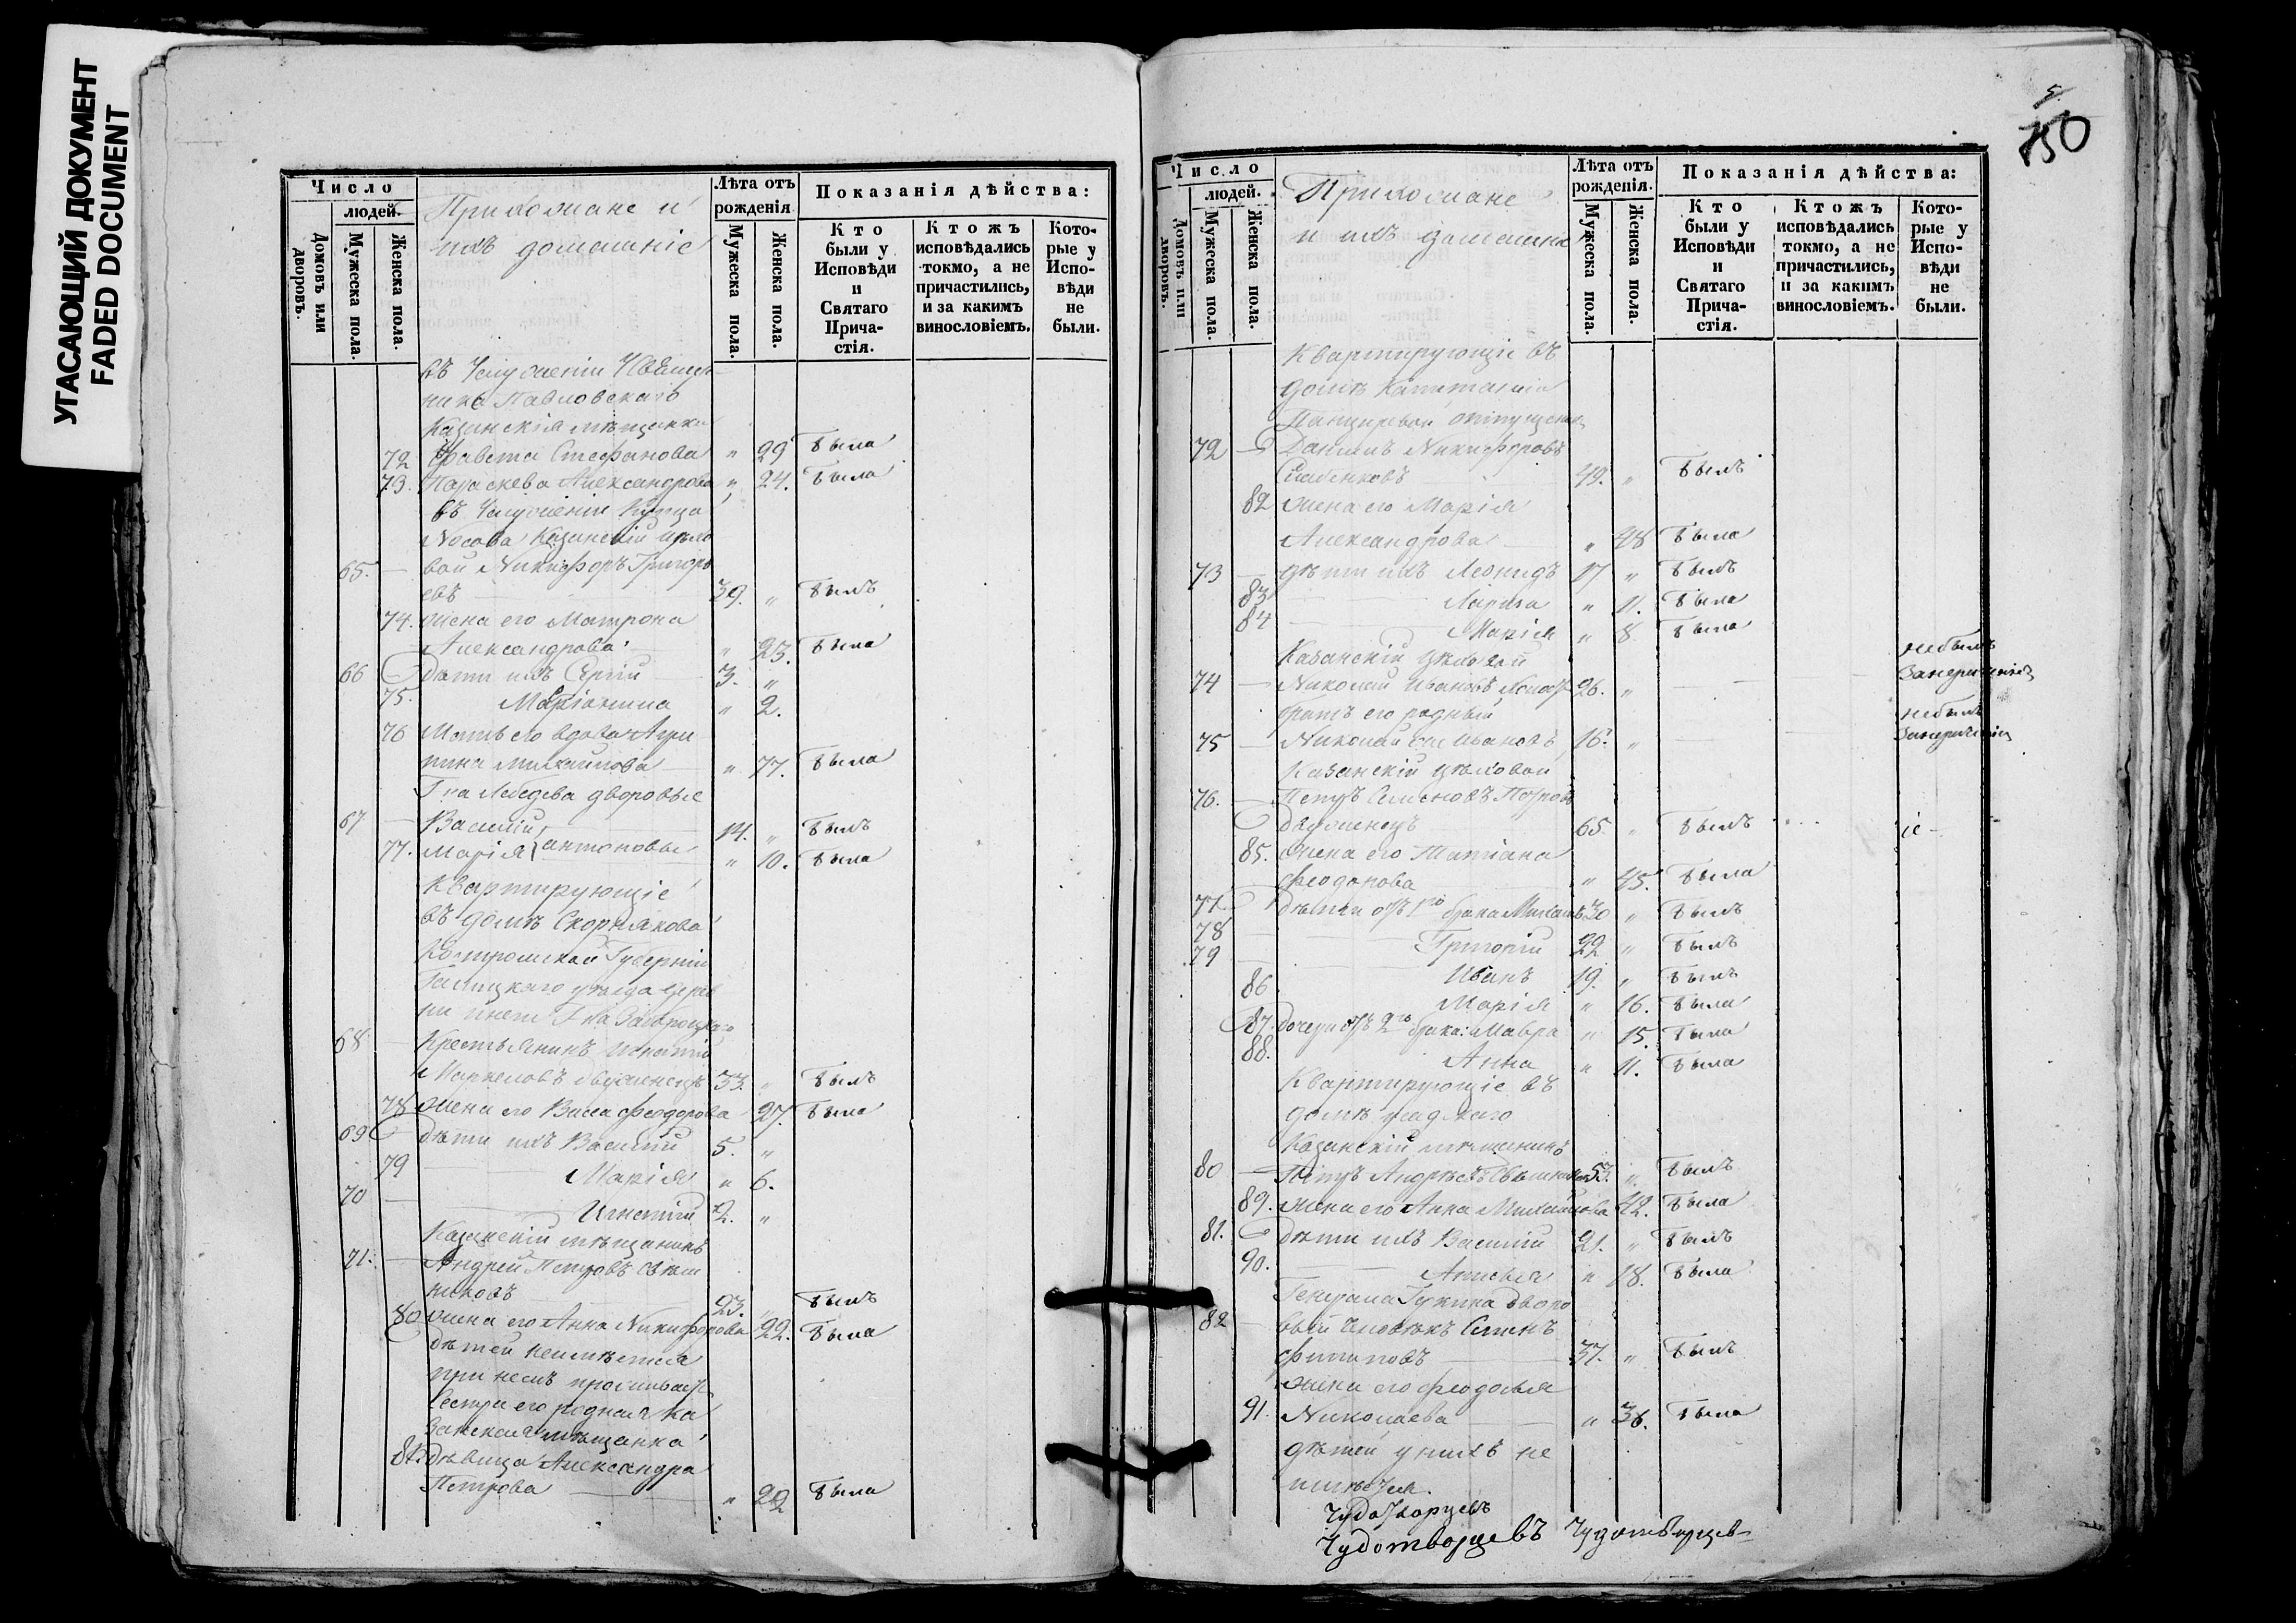 УГАСАЮЩИЙ ДОКУМЕНТ
FADED DOCUMENT
Число
людей.
Домовъ или дворовъ.
Мужеска пола.
Женска пола.
Прихожане и
ихъ домашніе
Лѣта отъ рожденія
Мужеска пола.
Женска пола.
Показанія дѣйства:
Кто были у Исповѣди и Святаго Прича-стія.
Ктожъ исповѣдались токмо, а не причастились, и за какимъ винословіемъ.
Кото-рые у Испо-вѣди не были.
въ Услуженіи
Павловскаго
Казанскія мѣщанки
72 Стефанова " 29 была
73. Параскева Александрова " 24. была
въ Услуженіи Купца
Носова Казанскій цѣхо
65. — вой Никифоръ Григорь
евъ 39. " былъ
74. жена его Матрона
Александрова " 23. была
66 дѣти ихъ Сергій 3. "
75. Маріамна " 2.
76 Мать его вдова Агри
пина Михайлова " 77. была
Г-на Лебедева дворовые
67 — Василій 14. " былъ
77. Марія } Антоновы " 10. была
Квартирующіе
въ домѣ Скорнякова
Костромской Губерніи
Галицкаго уѣзда
68 — Крестьянинъ
Маркеловъ двуженецъ 33. " былъ
78 жена его Васса Феодорова 27. была
69 дѣти ихъ Василій 5. "
79 Марія " 6.
70 — Игнатій 2. "
Казанскій мѣщанинъ
71. — Андрей Петровъ Свѣш
никовъ 23. " былъ
80 жена его Анна Никифорова 22. была
дѣтей неимѣется
при немъ проживаетъ
сестра его родная Ка
занская мѣщанка
81. дѣвица Александра
Петрова " 22 была
5.
750
Число
людей.
Домовъ или дворовъ.
Мужеска пола
Женска пола.
Прихожане
и ихъ домашніе
Лѣта отъ рожденія.
Мужеска пола.
Женска пола.
Показанія дѣйства:
Кто были у Исповѣди и Святаго Прича-стія.
Ктожъ исповѣдались токмо, а не причастились, и за какимъ винословіемъ.
Кото-рые у Испо-вѣди не были.
Квартирующіе въ
домѣ Капитанши
отпущенн
72 — Даніилъ Никифоровъ
49. " былъ
82 жена его Марія
Александрова " 48 была
73 — дѣти ихъ Леонидъ 17 " былъ
83 Лариса " 11. была
84 Марія " 8 была
Казанскій цѣховой небылъ
74 — Николай Ивановъ 26. " — —
братъ его родный небылъ
75 — Николай Ивановъ 16. " —
Казанскій цѣховой
76. — Петръ Семеновъ
двуженецъ 65. " былъ
85. жена его Татіана
Феодорова " 45. была
77 — дѣти отъ 1го брака Михаилъ 30 " былъ
78 — Григорій 22 " былъ
79 — Иванъ 19. " былъ
86 Марія " 16. была
87. дочери отъ 2го брака: Мавра " 15. была
88. Анна " 11. была
Квартирующіе въ
домѣ
Казанскій мѣщанинъ
80 — Петръ Андреевъ Свѣшниковъ 53. " былъ
89. жена его Анна Михайлова 42. была
81. дѣти ихъ Василій 21. " былъ
90. " 18. была
Генерала дворо
82 — вый человѣкъ Семенъ
Филиповъ 37. " былъ
жена его Феодосья
91. Николаева " 36. была
дѣтей у нихъ не
имѣется.
Чудотворцевъ
Чудотворцевъ Чудотворцев